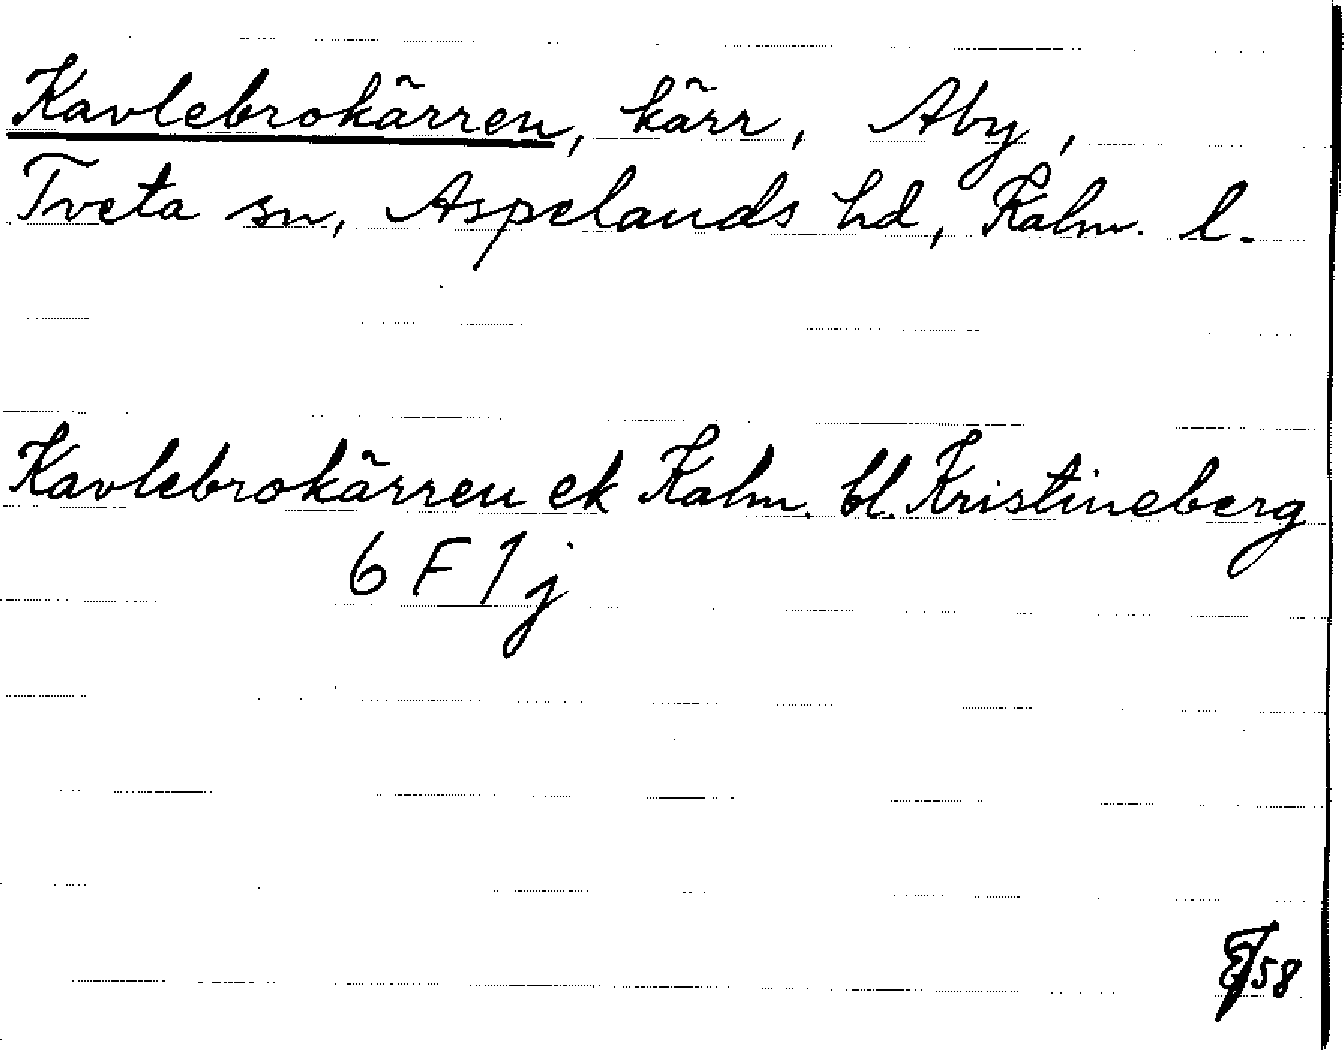 Kavlebrokärren, kärr, Aby,
Tveta sn, Aspelands hd, Kalm. l.
Kavlebrokärren ek Kalm. bl. Kristineberg
6 F 1 j
58